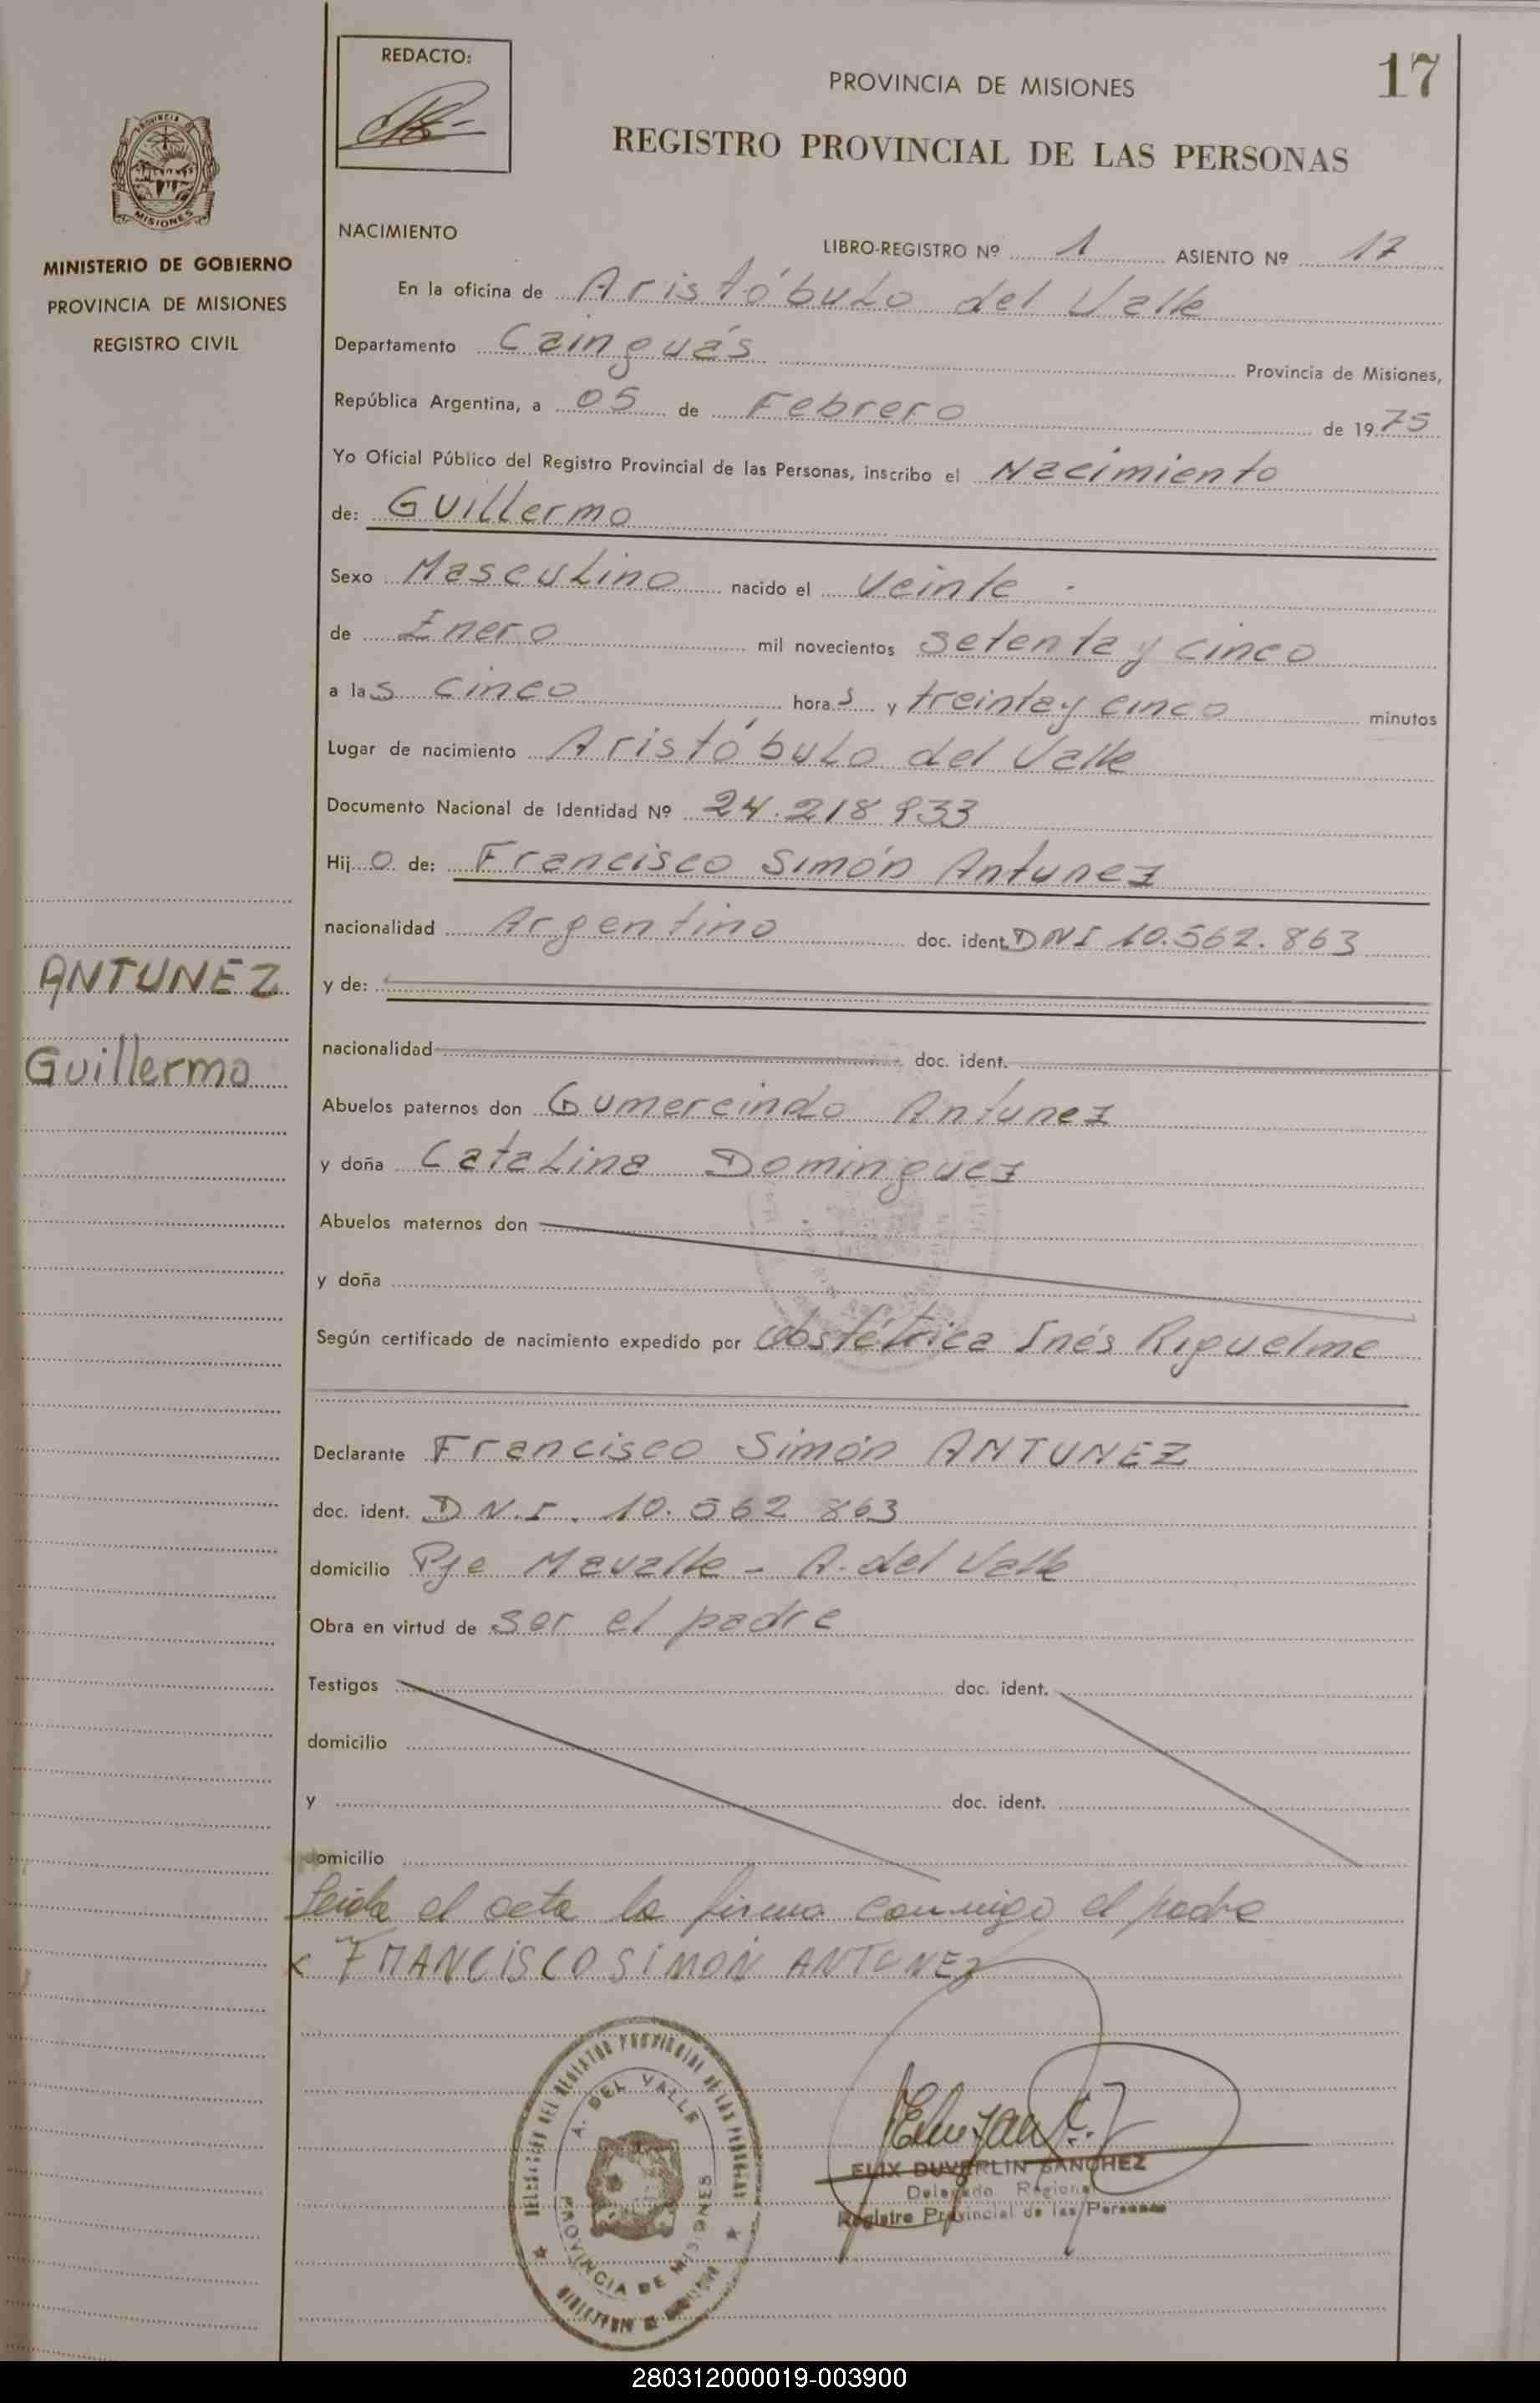 REDACTO:
17
PROVINCIA DE MISIONES
REGISTRO PROVINCIAL DE LAS PERSONAS
PROVINCIA
MISIONES
MINISTERIO DE GOBIERNO
PROVINCIA DE MISIONES
REGISTRO CIVIL
NACIMIENTO
LIBRO-REGISTRO Nº 1 ASIENTO Nº 17
En la oficina de Aristóbulo del Valle
Departamento Cainguás Provincia de Misiones,
República Argentina, a 05 de Febrero de 1975
Yo Oficial Público del Registro Provincial de las Personas, inscribo el Nacimiento
de: Guillermo
Sexo Masculino nacido el veinte
de Enero mil novecientos setenta y cinco
a las cinco horas y treinta y cinco minutos
Lugar de nacimiento Aristóbulo del Valle
Documento Nacional de Identidad Nº 24.218.933
Hijo de: Francisco Simón Antunez
nacionalidad Argentino doc. ident. DNI 10.562.863
ANTUNEZ
y de:
Guillermo
nacionalidad doc. ident.
Abuelos paternos don Gumercindo Antunez
y doña Catalina Dominguez
Abuelos maternos don
y doña
Según certificado de nacimiento expedido por Obstétrica Inés Riquelme
Declarante Francisco Simón ANTUNEZ
doc. ident. D.N.I. 10.562 863
domicilio Pje Mavalle - A. del Valle
Obra en virtud de ser el padre
Testigos doc. ident.
domicilio
y doc. ident.
domicilio
Leida el acta la firma conmigo el padre
x FRANCISCO SIMON ANTUNEZ
DELEGACION DEL REGISTRO PROVINCIAL DE LAS PERSONAS
A. DEL VALLE
PROVINCIA DE MISIONES
ELIX DUVERLIN SANCHEZ
Delegado Regional
Registro Provincial de las Personas
280312000019-003900